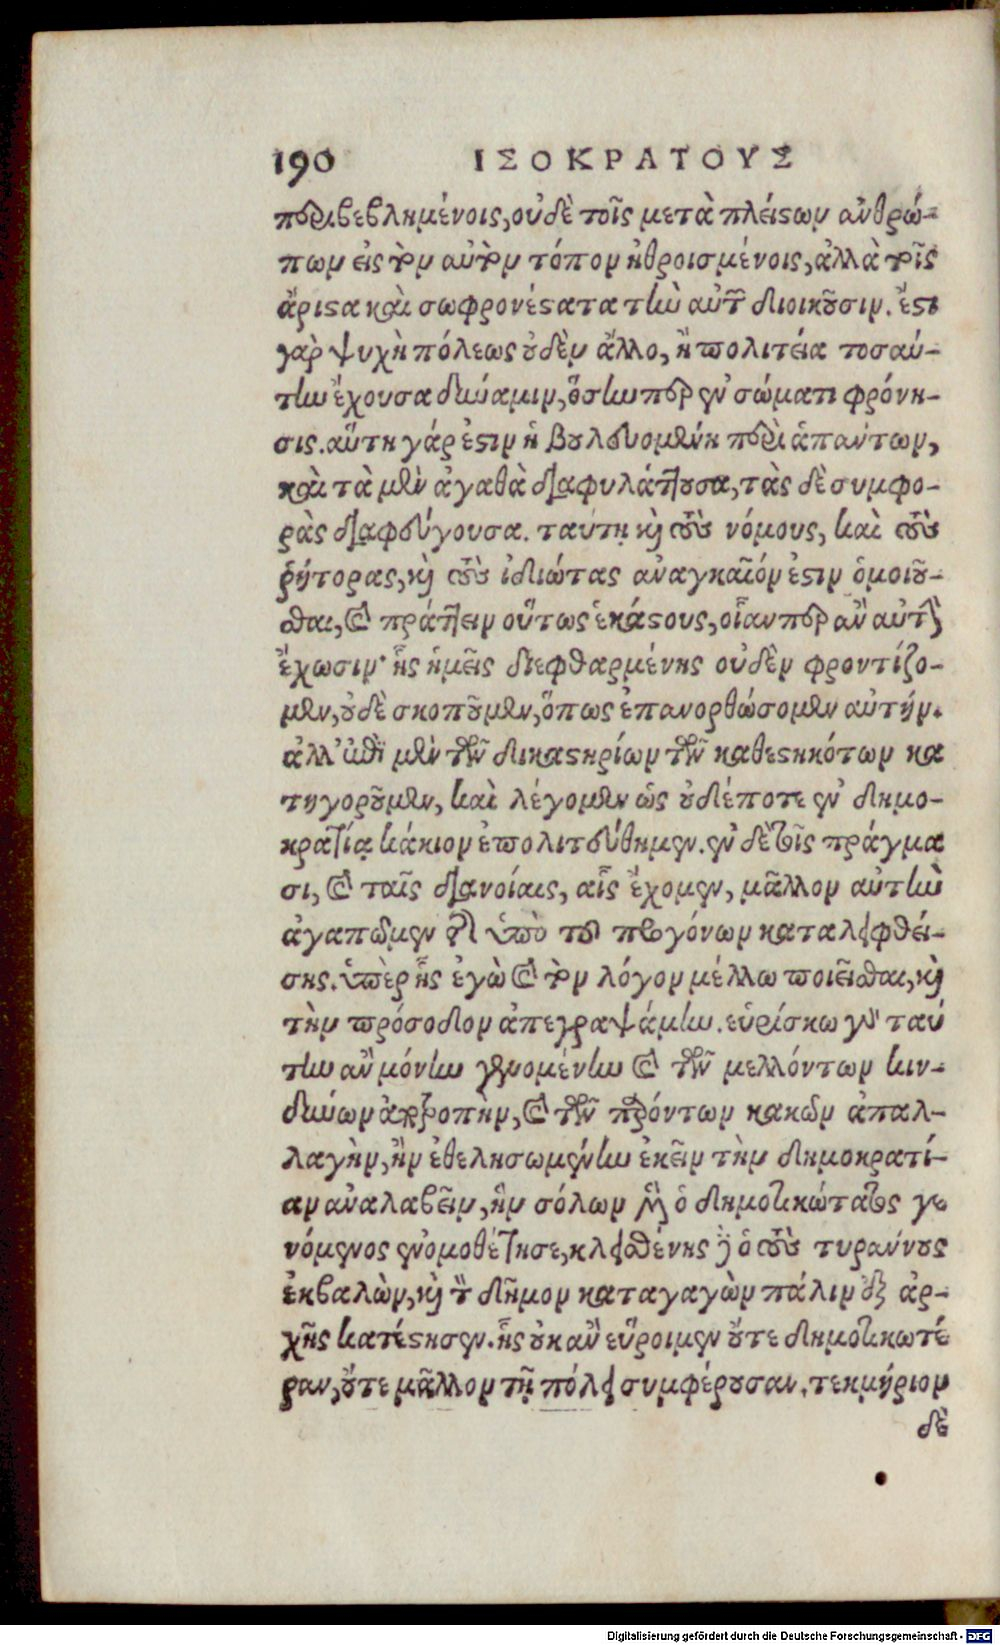 190 ΙΣΟΚΡΑΤΟΥΣ
περιβεβλημένοις, οὐδὲ τοῖς μετὰ πλείστων ἀνθρώ-
πων εἰς τὸν αὐτὸν τόπον ἠθροισμένοις, ἀλλὰ τοῖς
ἄριστα καὶ σωφρονέστατα τὴν αὐτῶν διοικοῦσιν. ἔστι
γὰρ ψυχὴ πόλεως οὐδὲν ἄλλο, ἢ πολιτεία τοσαύ-
την ἔχουσα δύναμιν, ὅσην περ ἐν σώματι φρόνη-
σις. αὕτη γάρ ἐστιν ἡ βουλευομένη περὶ ἁπάντων,
καὶ τὰ μὲν ἀγαθὰ διαφυλάττουσα, τὰς δὲ συμφο-
ρὰς διαφεύγουσα. ταύτῃ καὶ τοὺς νόμους, καὶ τοὺς
ῥήτορας, καὶ τοὺς ἰδιώτας ἀναγκαῖόν ἐστιν ὁμοιοῦ-
σθαι, καὶ πράττειν οὕτως ἑκάστους, οἵαν περ ἂν αὐτὴν
ἔχωσιν· ἧς ἡμεῖς διεφθαρμένης οὐδὲν φροντίζο-
μεν, οὐδὲ σκοποῦμεν, ὅπως ἐπανορθώσομεν αὐτήν.
ἀλλ' ἐπὶ μὲν τῶν δικαστηρίων τῶν καθεστηκότων κα
τηγοροῦμεν, καὶ λέγομεν ὡς οὐδέποτε ἐν δημο-
κρατίᾳ κάκιον ἐπολιτεύθημεν. ἐν δὲ τοῖς πράγμα
σι, καὶ ταῖς διανοίαις, αἷς ἔχομεν, μᾶλλον αὐτὴν
ἀγαπῶμεν τῆς ὑπὸ τῶν προγόνων καταλειφθεί-
σης. ὑπὲρ ἧς ἐγὼ καὶ τὸν λόγον μέλλω ποιεῖσθαι, καὶ
τὴν πρόσοδον ἀπεγραψάμην. εὑρίσκω γὰρ ταύ
την ἂν μόνην γενομένην καὶ τῶν μελλόντων κιν-
δύνων ἀποτροπὴν, καὶ τῶν παρόντων κακῶν ἀπαλ-
λαγὴν, ἢν ἐθελήσωμεν τὴν ἐκεῖν τὴν δημοκρατί-
αν ἀναλαβεῖν, ἣν σόλων μὲν ὁ δημοτικώτατος γε
νόμενος ἐνομοθέτησε, κλεισθένης δ' ὁ τοὺς τυράννους
ἐκβαλὼν, καὶ τὸν δῆμον καταγαγὼν πάλιν ἐξ ἀρ-
χῆς κατέστησεν. ἧς οὐκ ἂν εὕροιμεν οὔτε δημοτικωτέ
ραν, οὔτε μᾶλλον τῇ πόλει συμφέρουσαν. τεκμήριον
δὲ
Digitalisierung gefördert durch die Deutsche Forschungsgemeinschaft - DFG